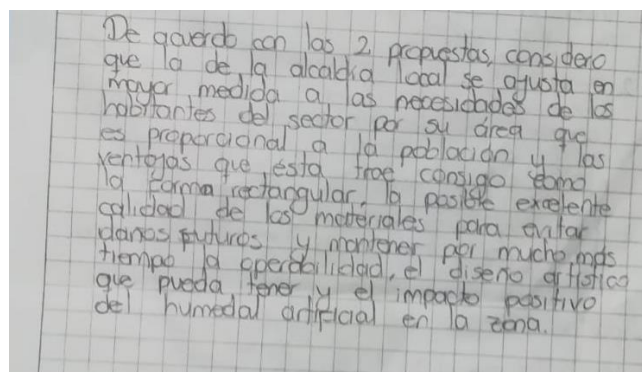 De acuerdo con las 2 propuestas, considero
que la de la alcaldia local se ajusta en
mayor medida a las necesidades de los
habitantes del sector por su área que
es proporcional a la población y las
ventajas que esta trae consigo como
la forma rectangular, la posible excelente
calidad de los materiales para evitar
danos futuros y mantener por mucho mas
tiempo la operabilidad, el diseño artistico
que pueda tener y el impacto positivo
del humedal artificial en la zona.